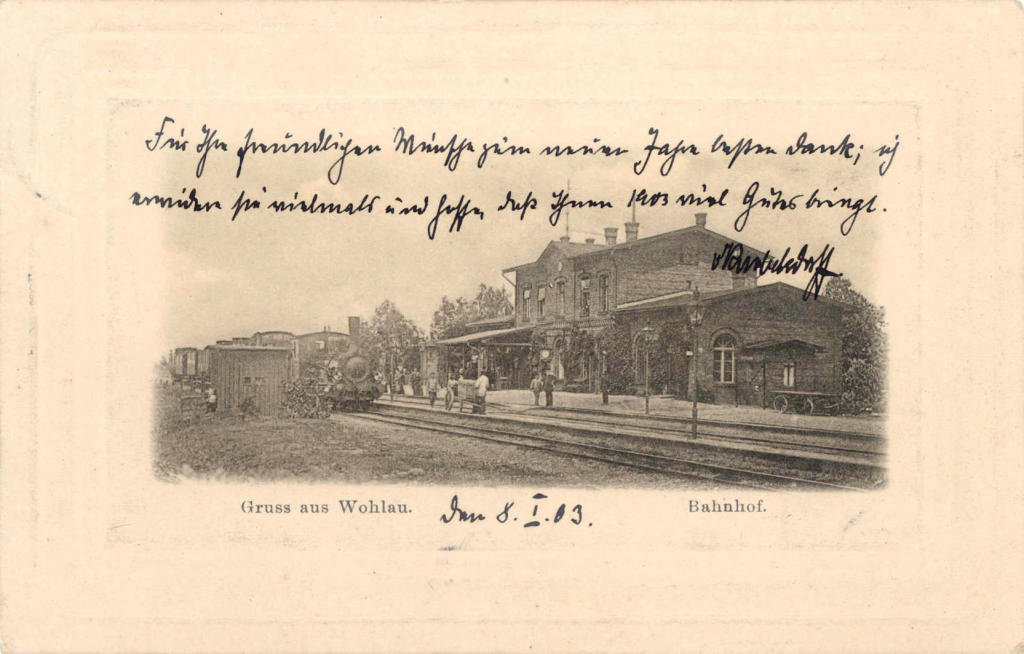 Für Ihre freundlichen Wünsche zum neuen Jahre besten Dank; ich
erwidere sie vielmals und hoffe, daß Ihnen 1903 viel Gutes bringt.
Gruss aus Wohlau. den 8. I. 03. Bahnhof.